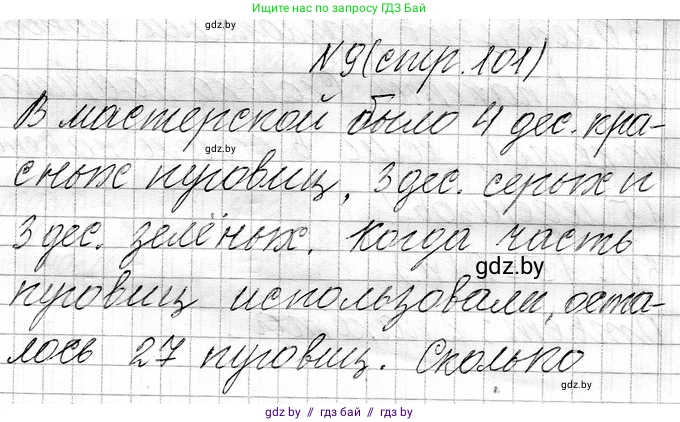 больше решений по запросу ГДЗ Бай
№9(стр.101)
В мастерской было 4 дес. кра-
gdz.by
сных пуговиц, 3 дес. серых и
3 дес. зелёных. Когда часть
gdz.by
пуговиц использовали, оста-
лось 27 пуговиц. Сколько
gdz.by
gdz.by // гдз бай // gdz.by